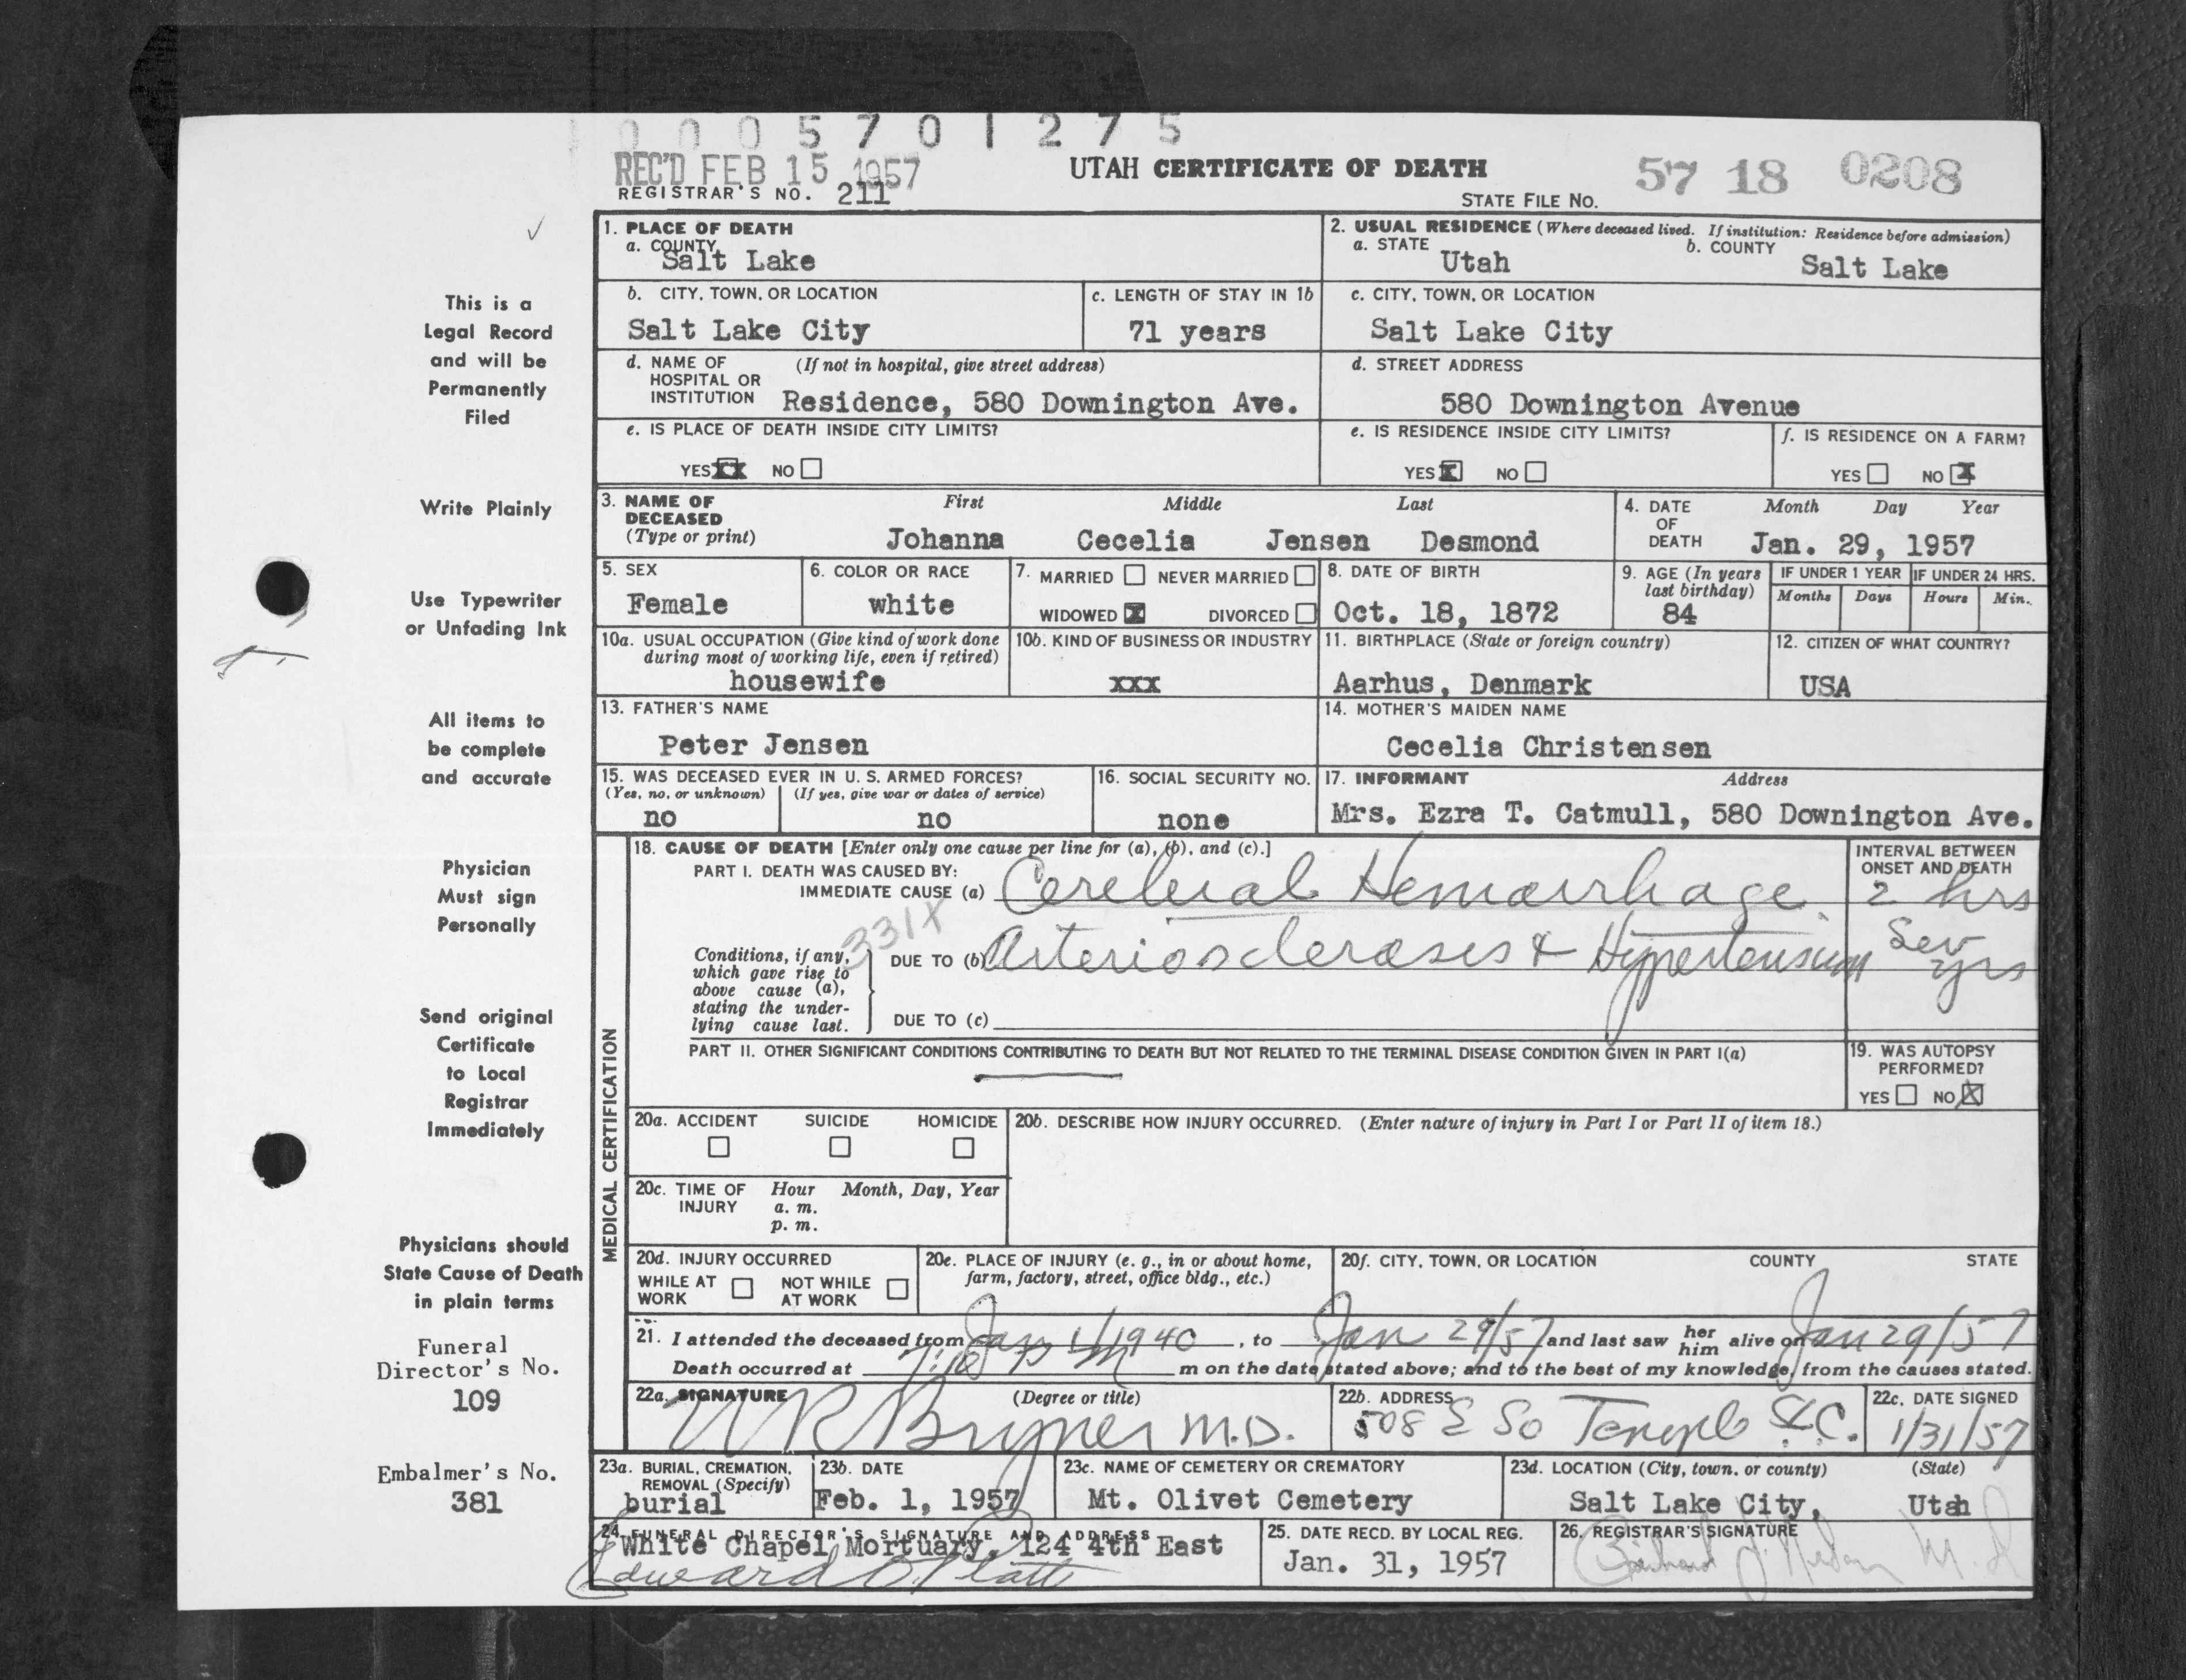 0 0 0 5 7 0 1 2 7 5
REC'D FEB 15 1957
UTAH CERTIFICATE OF DEATH
57 18 0208
REGISTRAR'S NO. 211
STATE FILE NO.
This is a
Legal Record
and will be
Permanently
Filed
Write Plainly
Use Typewriter
or Unfading Ink
All items to
be complete
and accurate
Physician
Must sign
Personally
Send original
Certificate
to Local
Registrar
Immediately
Physicians should
State Cause of Death
in plain terms
Funeral
Director's No.
109
Embalmer's No.
381
1. PLACE OF DEATH
a. COUNTY
Salt Lake
2. USUAL RESIDENCE (Where deceased lived. If institution: Residence before admission)
a. STATE Utah b. COUNTY Salt Lake
b. CITY, TOWN, OR LOCATION
Salt Lake City
c. LENGTH OF STAY IN 1b
71 years
c. CITY, TOWN, OR LOCATION
Salt Lake City
d. NAME OF (If not in hospital, give street address)
HOSPITAL OR
INSTITUTION Residence, 580 Downington Ave.
d. STREET ADDRESS
580 Downington Avenue
e. IS PLACE OF DEATH INSIDE CITY LIMITS?
YES XX NO
e. IS RESIDENCE INSIDE CITY LIMITS?
YES X NO
f. IS RESIDENCE ON A FARM?
YES NO X
3. NAME OF First Middle Last
DECEASED
(Type or print) Johanna Cecelia Jensen Desmond
4. DATE Month Day Year
OF
DEATH Jan. 29, 1957
5. SEX
Female
6. COLOR OR RACE
white
7. MARRIED NEVER MARRIED
WIDOWED X DIVORCED
8. DATE OF BIRTH
Oct. 18, 1872
9. AGE (In years
last birthday)
84
IF UNDER 1 YEAR IF UNDER 24 HRS.
Months Days Hours Min.
10a. USUAL OCCUPATION (Give kind of work done
during most of working life, even if retired)
housewife
10b. KIND OF BUSINESS OR INDUSTRY
xxx
11. BIRTHPLACE (State or foreign country)
Aarhus, Denmark
12. CITIZEN OF WHAT COUNTRY?
USA
13. FATHER'S NAME
Peter Jensen
14. MOTHER'S MAIDEN NAME
Cecelia Christensen
15. WAS DECEASED EVER IN U. S. ARMED FORCES?
(Yes, no, or unknown) (If yes, give war or dates of service)
no no
16. SOCIAL SECURITY NO.
none
17. INFORMANT Address
Mrs. Ezra T. Catmull, 580 Downington Ave.
MEDICAL CERTIFICATION
18. CAUSE OF DEATH [Enter only one cause per line for (a), (b), and (c).]
PART I. DEATH WAS CAUSED BY:
IMMEDIATE CAUSE (a) Cerebral Hemorrhage
INTERVAL BETWEEN
ONSET AND DEATH
2 hrs
331X
Conditions, if any,
which gave rise to
above cause (a),
stating the under-
lying cause last.
DUE TO (b) Arteriosclerosis & Hypertension
Sev
yrs
DUE TO (c)
PART II. OTHER SIGNIFICANT CONDITIONS CONTRIBUTING TO DEATH BUT NOT RELATED TO THE TERMINAL DISEASE CONDITION GIVEN IN PART I(a)
19. WAS AUTOPSY
PERFORMED?
YES NO X
20a. ACCIDENT SUICIDE HOMICIDE
20b. DESCRIBE HOW INJURY OCCURRED. (Enter nature of injury in Part I or Part II of item 18.)
20c. TIME OF Hour Month, Day, Year
INJURY a. m.
p. m.
20d. INJURY OCCURRED
WHILE AT NOT WHILE
WORK AT WORK
20e. PLACE OF INJURY (e. g., in or about home,
farm, factory, street, office bldg., etc.)
20f. CITY, TOWN, OR LOCATION COUNTY STATE
21. I attended the deceased from Jan 1/1940, to Jan 29/57 and last saw her him alive on Jan 29/57
Death occurred at m on the date stated above; and to the best of my knowledge, from the causes stated.
22a. SIGNATURE (Degree or title)
W R Bryner M.D.
22b. ADDRESS
508 E So Temple S.L.C.
22c. DATE SIGNED
1/31/57
23a. BURIAL, CREMATION,
REMOVAL (Specify)
burial
23b. DATE
Feb. 1, 1957
23c. NAME OF CEMETERY OR CREMATORY
Mt. Olivet Cemetery
23d. LOCATION (City, town, or county) (State)
Salt Lake City, Utah
24. FUNERAL DIRECTOR'S SIGNATURE AND ADDRESS
White Chapel Mortuary, 124 4th East
Edward D. Platt
25. DATE RECD. BY LOCAL REG.
Jan. 31, 1957
26. REGISTRAR'S SIGNATURE
M.D.